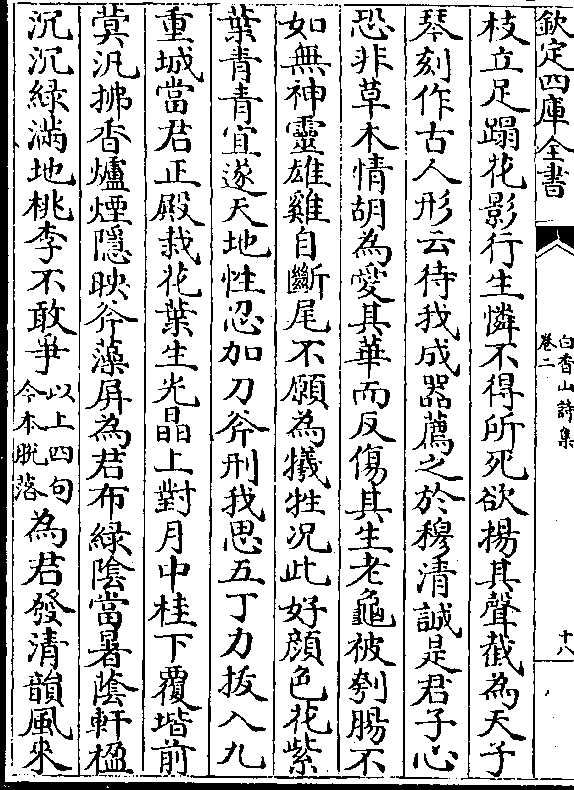 欽定四庫全書
白香山詩集
卷二
十八
枝立足蹋花影行生憐不得所死欲揚其聲截為天子
琴刻作古人形云待我成器薦之於穆清誠是君子心
恐非草木情胡為愛其華而反傷其生老龜被刳腸不
如無神靈雄雞自斷尾不願為犧牲况此好顔色花紫
葉青青宜遂天地性忍加刀斧刑我思五丁力拔入九
重城當君正殿栽花葉生光晶上對月中桂下覆堦前
蓂汎拂香爐煙隱映斧藻屏為君布綠陰當暑蔭軒楹
沉沉綠滿地桃李不敢爭以上四句今本脱落為君發清韻風來